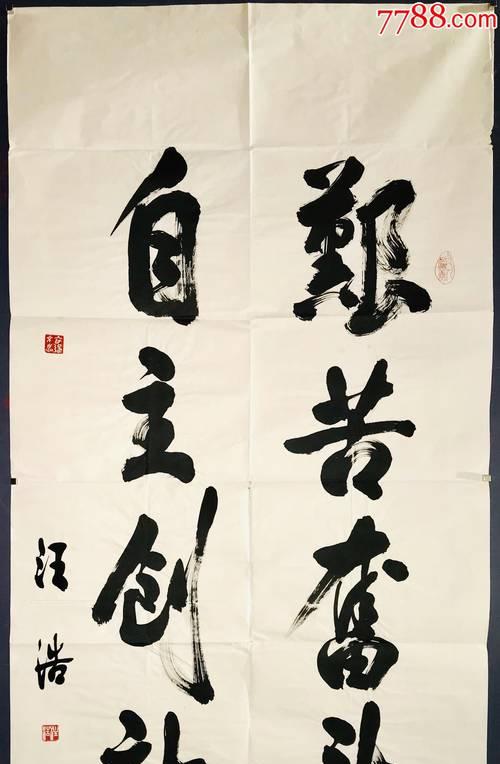 7788.com
艱苦奮
自主創
汪浩